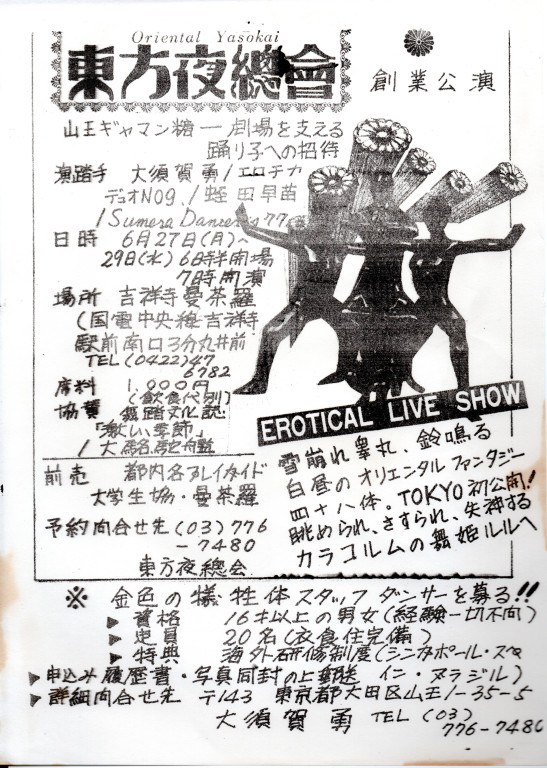 Oriental Yasokai
東方夜總會
創業公演
山王ギャマン糖一劇場を支える
踊り子への招待
演踏手 大須賀勇/エロチカ
デュオNO9./蛭田早苗
/Sumera Dancers 77
日時 6月27日(月)~
29日(水) 6時半開場
7時開演
場所 吉祥寺曼荼羅
(国電中央線吉祥寺
駅前南口3分丸井前
TEL (0422)47
6782
席料 1,000円
(飲食代別)
協賛 舞踏文化誌
「激しい季節」
/大駱駝艦
EROTICAL LIVE SHOW
雪崩れ睾丸、鈴鳴る
白昼のオリエンタルファンタジー
四十八体。TOKYO初公開!
眺められ、さすられ、失神する
カラコルムの舞姫ルルへ
前売 都内名プレイガイド
大学生協・曼荼羅
予約问合せ先 (03)776
-7480
東方夜總会
※ 金色の犠牲体スタッフダンサーを募る!!
▶ 資格 16才以上の男女(経験一切不问)
▶ 定員 20名(衣食住完備)
▶ 特典 海外研修制度(シンガポール・スペ
イン・ブラジル)
▶申込み 履歴書・写真同封の上郵送
▶詳細向合せ先 〒143 東京都大田区山王1-35-5
大須賀勇 TEL (03)
776-7480